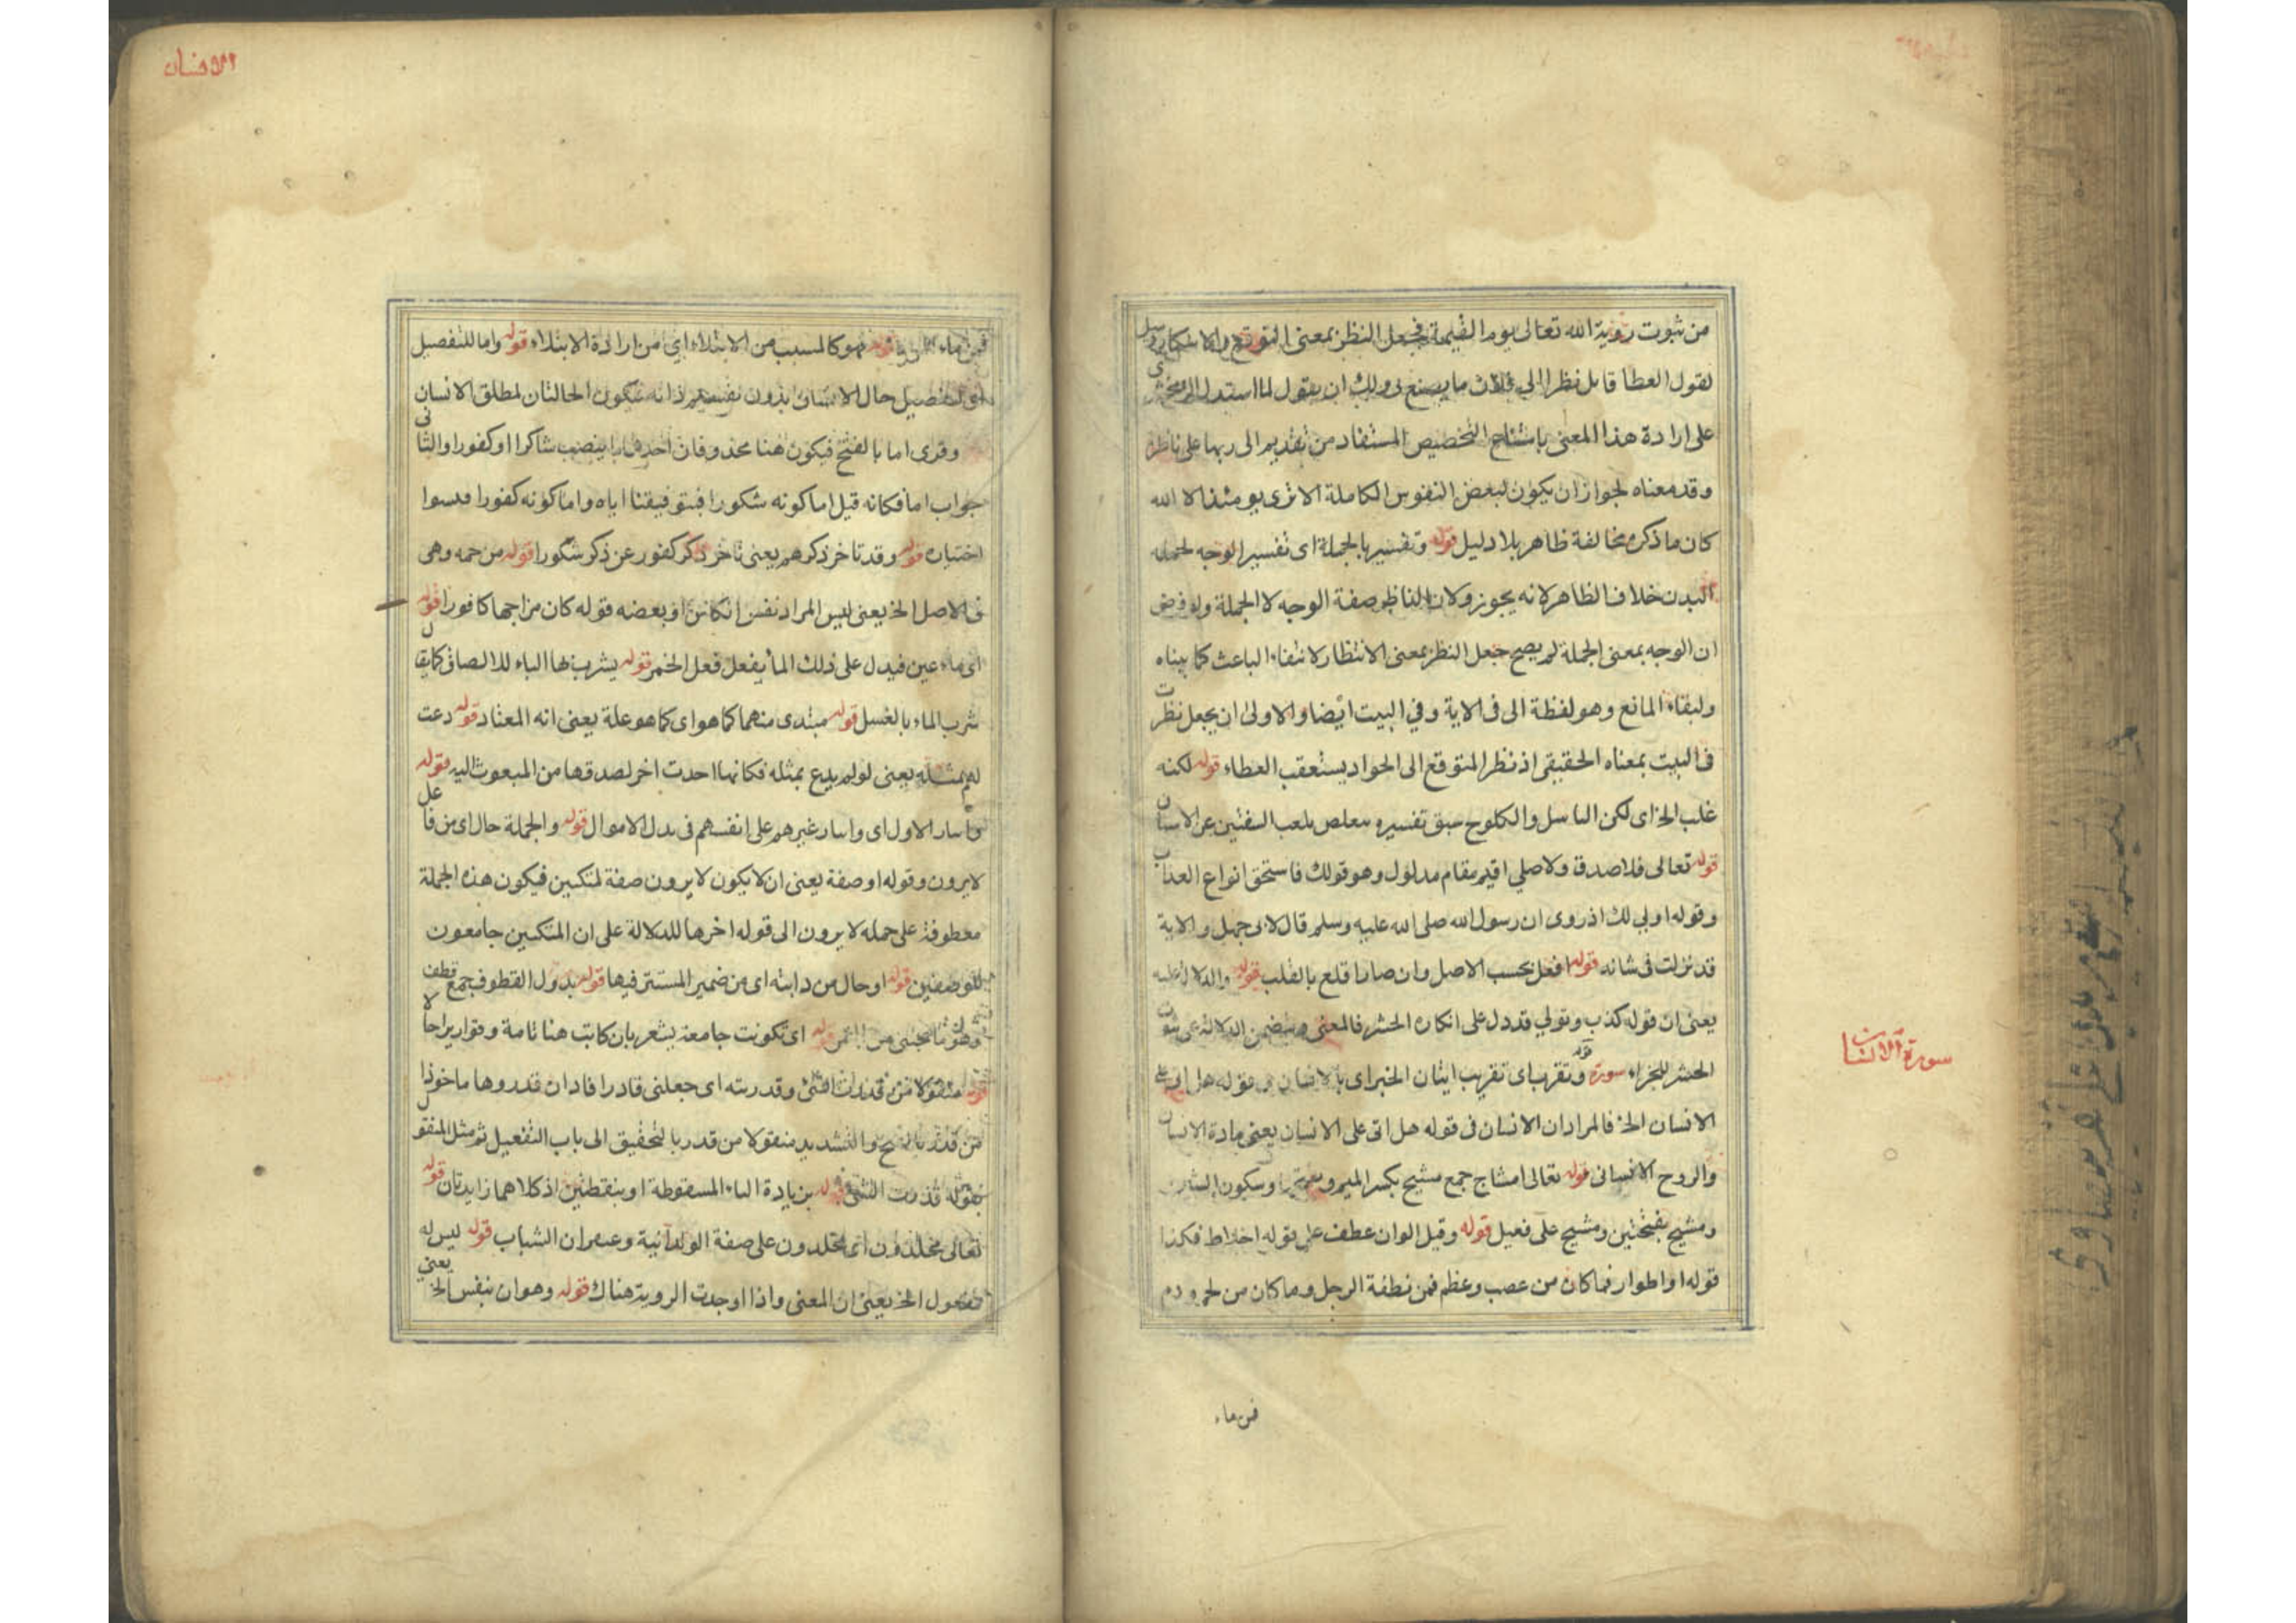 من ثبوت رؤية الله تعالى يوم القيمة فجعل النظر بمعنى التوقع
لقول العطا قابل نظرا الى فلان ما يصنع لى ولك ان يقول لما استدل الزمخشرى
على ارادة هذا المعنى التخصيص المستفاد من تقديم الى ربها على ناظرة
وقد معناه لجواز ان يكون لبعض النفوس الكاملة الا ترى يومئذ الا الله
كان ما ذكره مخالفة ظاهر بلا دليل قوله وتفسيره بالجملة اى تفسير الوجه لجملة
البدن خلاف الظاهر لانه يجوز ولان الناظر صفة الوجه لا الجملة ولو فرض
ان الوجه بمعنى الجملة لم يصح جعل النظر بمعنى الانتظار لانتفاء الباعث كما بيناه
ولبقاء المانع وهو لفظة الى فى الاية وفي البيت ايضا والاولى ان يجعل نظرت
فى البيت بمعناه الحقيقى اذ نظر المتوقع الى الجواد يستعقب العطاء قوله لكنه
غلب الخ اى لكن الباسل والكلوح سبق تفسيره عن الاسنان
قوله تعالى فلا صدق ولا صلى اقيم مقام مدلول وهو قولك فاستحق انواع العذاب
وقوله اولى لك اذ روى ان رسول الله صلى الله عليه وسلم قال لابى جهل والاية
قد نزلت فى شانه قوله افعل بحسب الاصل وان صار اقلع بالقلب قوله والدلالة عليه
يعنى ان قوله كذب وتولي قد دل على انكاره الحشر فالمعنى يتضمن الدلالة على ثبوت
الحشر للجزاء سورة قوله وتقرب اى تقريب اتيان الخبر اى بالانسان فى قوله هل اتى على
الانسان الخ فالمراد ان الانسان فى قوله هل اتى على الانسان يعنى مادة الانسان
والروح الانسانى قوله تعالى امشاج جمع مشيج بكسر الميم وسكون الشين
ومشيج بفتحتين ومشيج على فعيل قوله وقيل الوان عطف على قوله اخلاط فكذا
قوله او اطوار فما كان من عصب وعظم فمن نطفة الرجل وما كان من لحم ودم
فمن ماء
سورة الانسان
الانسان
فمن ماء قوله فهو كالمسبب من الابتلاء اي من ارادة الابتلاء قوله واما للتفصيل
اى لتفصيل حال الانسان بدون تقسيم ذاته فيكون الحالتان لمطلق الانسان
وقرى اما بالفتح فيكون هنا محذوفان احدهما ما ينصب شاكرا او كفورا والثانى
جواب اما فكانه قيل اما كونه شكورا فبتوفيقنا اياه واما كونه كفورا فبسوء
اختياره قوله وقد تاخر ذكرهم يعنى تاخر ذكر كفور عن ذكر شكورا قوله من خمر وهى
فى الاصل الخ يعنى ليس المراد نفس الكاس او بعضه قوله كان مزاجها كافورا قوله
اى ماء عين فيدل على ذلك الماء يفعل فعل الخمر قوله يشرب بها الباء للالصاق كما يقال
شرب الماء بالعسل قوله مبتدى منهما كما هو اى كما هو علة يعنى انه المعتاد قوله دعت
لهم بمثله يعنى لو لم يدع بمثله فكانها احدت اخر لصدقها من المبعوث اليه قوله
واسار الاول اى واسار غيرهم على انفسهم فى بدل الاموال قوله والجملة حال اى من فاعل
لا يرون وقوله او صفة يعنى ان لا يكون لا يرون صفة لمتكئين فيكون هذه الجملة
معطوفة على جمله لا يرون الى قوله اخرها للدلالة على ان المتكئين جامعون
للوصفين قوله او حال من دانية اى من ضمير المستتر فيها قوله القطوف جمع قطف
وهو ما يجتنى من الثمر قوله اى تكونت جامعة يشعر بان كانت هنا تامة وقوارير احالا
قوله منقولا من قدرت الشئ وقدرته اى جعلنى قادرا فاد ان قدروها ماخوذا
من قدر والتشديد منقولا من قدر بالتخفيف الى باب التفعيل ثم مثل المنقول
بقوله قدرت الشئ قوله بزيادة الباء المسقوطة او بنقطتين اذ كلاهما زايدتان قوله
تعالى مخلدون اى مخلدون على صفة الولدانية وعنفوان الشباب قوله ليس له
مفعول الخ يعنى ان المعنى واذا اوجدت الروية هناك قوله وهو ان بنفس الخ يعنى